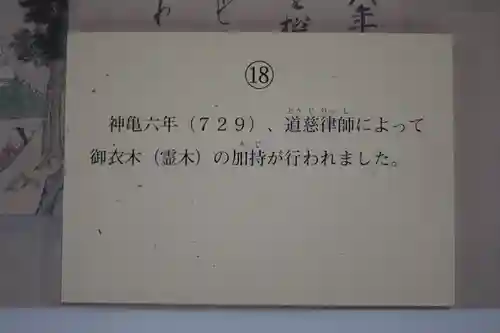 ⑱
神亀六年（７２９）、道慈律師によって
御衣木（霊木）の加持が行われました。